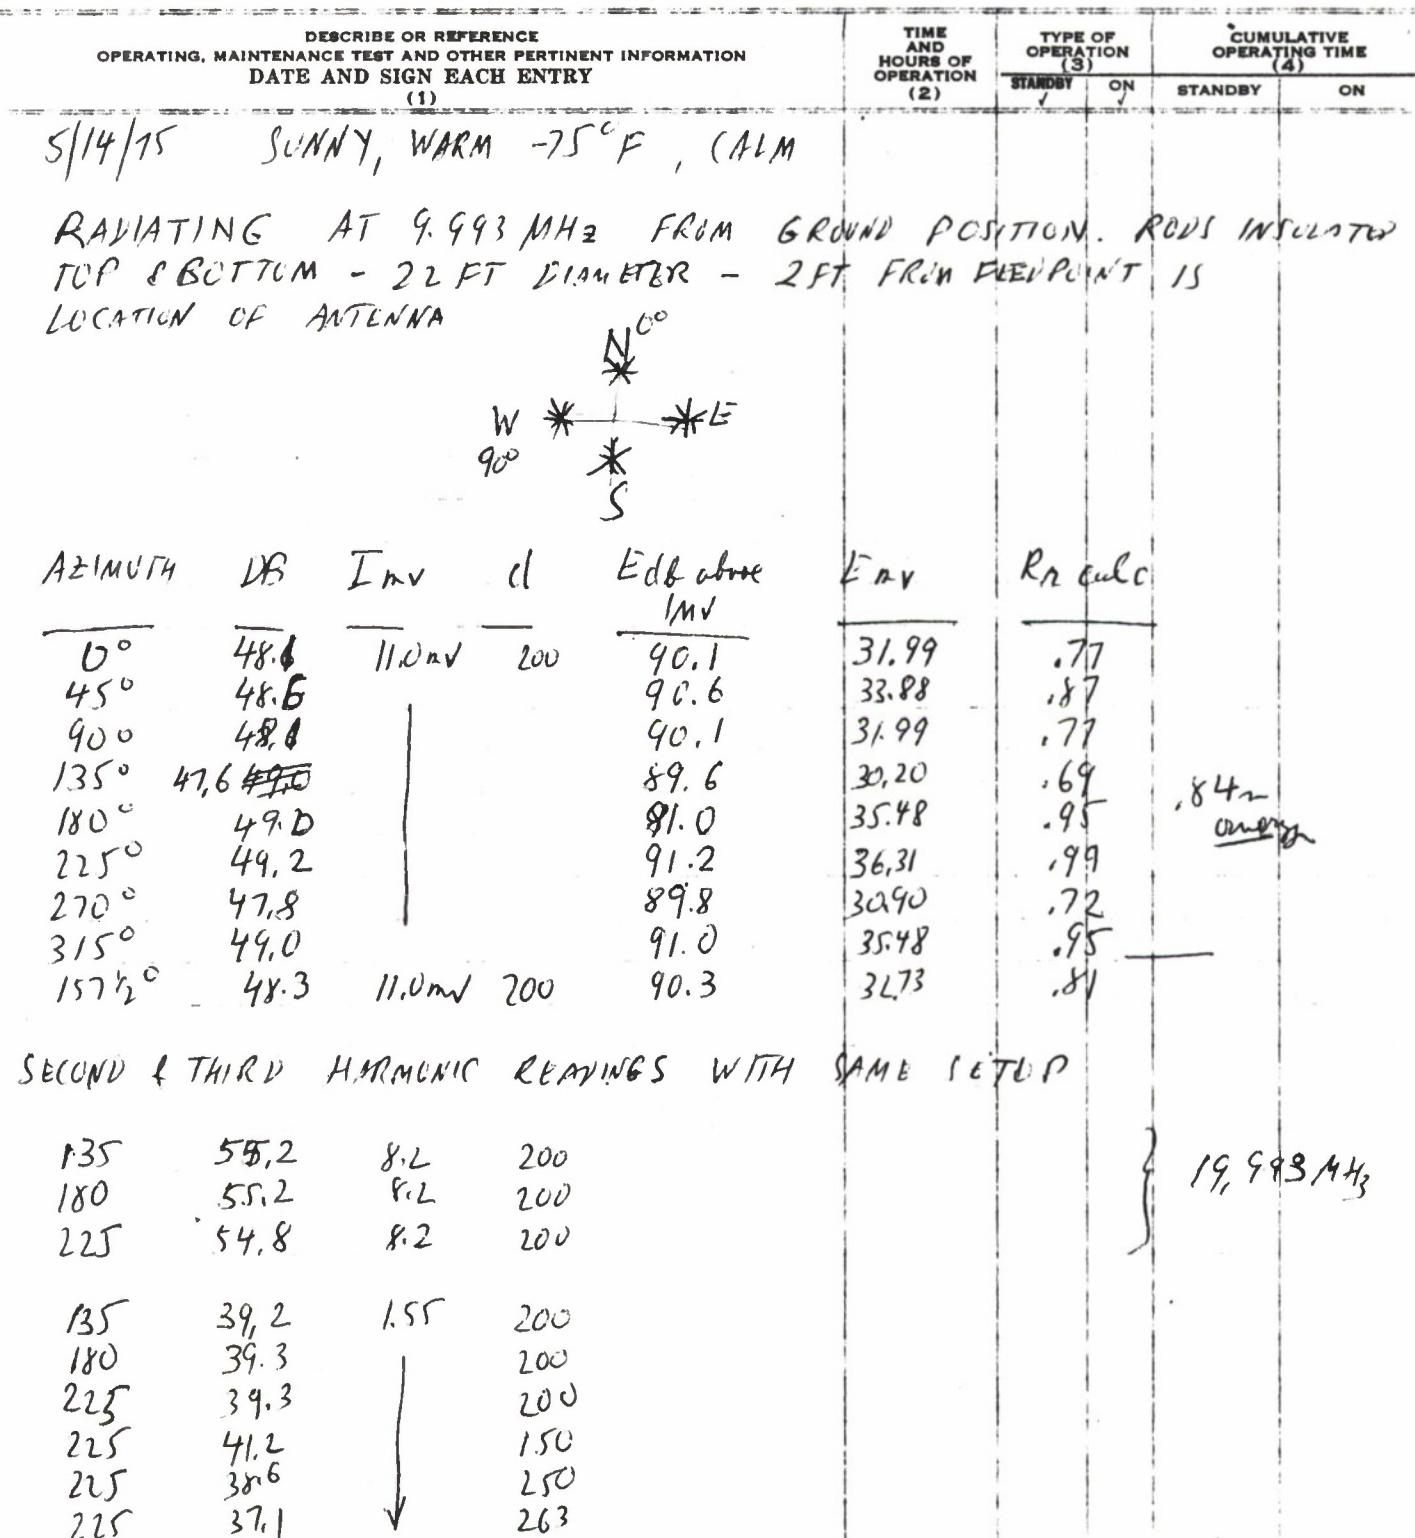 DESCRIBE OR REFERENCE
OPERATING, MAINTENANCE TEST AND OTHER PERTINENT INFORMATION
DATE AND SIGN EACH ENTRY
(1)
TIME
AND
HOURS OF
OPERATION
(2)
TYPE OF
OPERATION
(3)
STANDBY ON
✓ ✓
CUMULATIVE
OPERATING TIME
(4)
STANDBY ON
5/14/75 SUNNY, WARM -75°F, CALM
RADIATING AT 9.993 MHz FROM GROUND POSITION. RODS INSULATED
TOP & BOTTOM - 22 FT DIAMETER - 2 FT FROM FEEDPOINT IS
LOCATION OF ANTENNA
N 0°
W E
90°
S
AZIMUTH DB Imv d Edb above E mv Rr calc
1MV
0° 48.1 11.0mV 200 90.1 31.99 .77
45° 48.6 90.6 33.88 .87
90° 48.1 90.1 31.99 .77
135° 47.6 49.0 89.6 30.20 .69
180° 49.0 91.0 35.48 .95
.84Ω
average
225° 49.2 91.2 36.31 .99
270° 47.8 89.8 30.90 .72
315° 49.0 91.0 35.48 .95
157 1/2° 48.3 11.0mV 200 90.3 32.73 .81
SECOND & THIRD HARMONIC READINGS WITH SAME SETUP
135 55.2 8.2 200
180 55.2 8.2 200
19,993 MHz
225 54.8 8.2 200
135 39.2 1.55 200
180 39.3 200
225 39.3 200
225 41.2 150
225 38.6 250
225 37.1 263